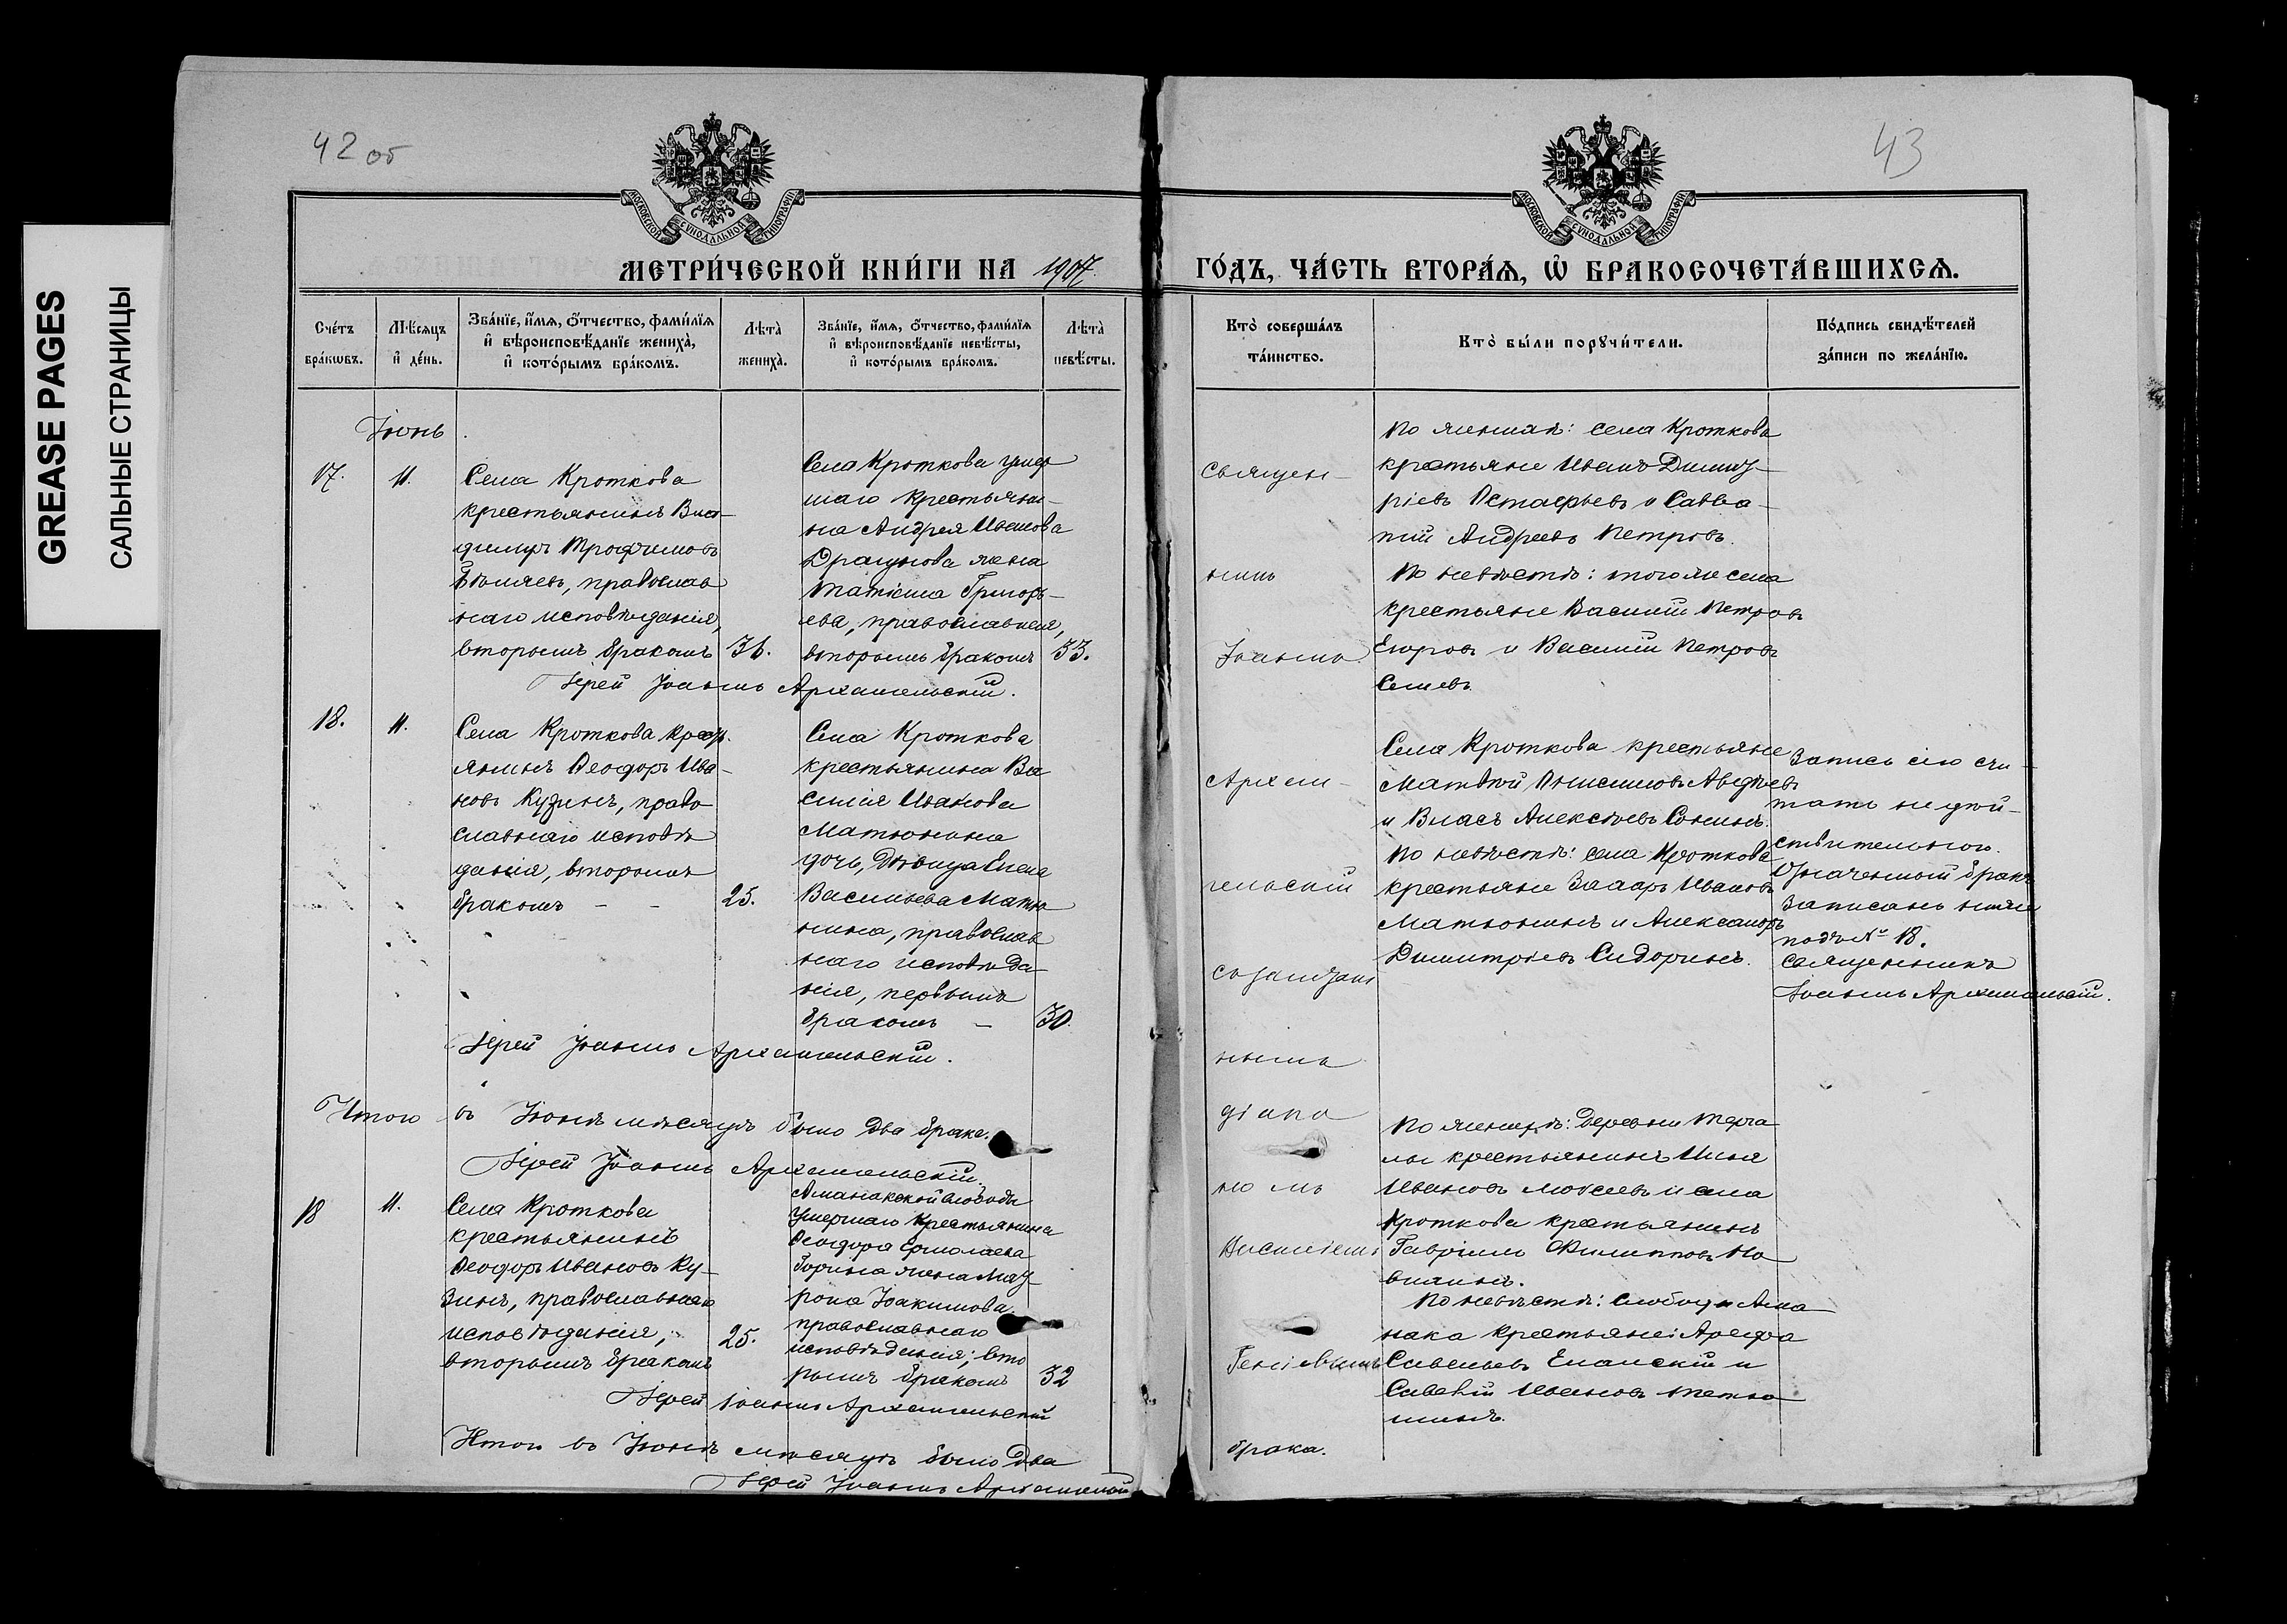 GREASE PAGES
САЛЬНЫЕ СТРАНИЦЫ
42 об
МОСКОВСКОЙ СѴНОДАЛЬНОЙ ТИПОГРАФІИ
МЕТРИ́ЧЕСКОЙ КНИ́ГИ НА 1907.
Сче́тъ бра́кѡвъ.
Мѣ́сяцъ и҆ де́нь.
Зва́нїе, и҆́мѧ, ѻ҆́тчество, фами́лїѧ
и҆ вѣроисповѣ́данїе жениха̀,
и҆ кото́рымъ бра́комъ.
Лѣта̀ жениха̀.
Зва́нїе, и҆́мѧ, ѻ҆́тчество, фами́лїѧ
и҆ вѣроисповѣ́данїе невѣ́сты,
и҆ кото́рымъ бра́комъ.
Лѣта̀ невѣ́сты.
Іюнь.
17. 11.
Села Кроткова
крестьянинъ Вла-
димиръ Трофимовъ
православ
наго исповѣданія,
вторымъ бракомъ 36.
Села Кроткова умер
шаго крестьяни-
на Андрея Иванова
Драгунова жена
Татіана Григорь-
ева, православная,
вторымъ бракомъ 33.
Іерей Іоаннъ Архангельскій.
18. 11.
Села Кроткова крест.
янинъ Ѳеодоръ Ива-
новъ Кузинъ, право
славнаго исповѣ
данія, вторымъ
бракомъ - - 25.
Села Кроткова
крестьянина Ва
силія Иванова
Матюнина
дочь, дѣвица Елена
Васильева Матю
нина, православ
наго исповѣда
нія, первымъ
бракомъ - 30.
Іерей Іоаннъ Архангельскій.
Итого въ Іюнѣ мѣсяцѣ было два брака.
Іерей Іоаннъ Архангельскій.
18 11.
Села Кроткова
крестьянинъ
Ѳеодоръ Ивановъ Ку-
зинъ, православнаго
исповѣданія,
вторымъ бракомъ 25.
слободы
умершаго крестьянина
Ѳеодора Ермолаева
жена Мат
рона Іоакимова
православнаго
исповѣданія; вто
рымъ бракомъ 32
Іерей Іоаннъ Архангельскій
Итого въ Іюнѣ мѣсяцѣ было два
Іерей Іоаннъ Архангельскій
43
МОСКОВСКОЙ СѴНОДАЛЬНОЙ ТИПОГРАФІИ
ГО́ДЪ, ЧА́СТЬ ВТОРА́Ѧ, Ѡ҆ БРАКОСОЧЕТА́ВШИХСѦ.
Кто̀ соверша́лъ
та́инство.
Кто̀ бы́ли порꙋчи́тели.
По́дпись свидѣ́телей
за́писи по жела́нїю.
Священ-
никъ
Іоаннъ
Архан-
гельскій
діако
номъ
брака.
По женихѣ: села Кроткова
крестьяне Иванъ Димит-
ріевъ Остафьевъ и Савва-
тій Андреевъ Петровъ.
По невѣстѣ: того же села
крестьяне Василій Петровъ
Егоровъ и Василій Петровъ
Села Кроткова крестьяне
Матвѣй Онисимовъ Авдѣевъ
и Власъ Алексѣевъ Сонинъ.
По невѣстѣ: села Кроткова
крестьяне Захаръ Ивановъ
Матюнинъ и Александръ
Димитріевъ Сидоринъ.
Запись сію счи-
тать недѣй-
ствительною.
Означенный бракъ
записанъ ниже
подъ № 18.
Священникъ
Іоаннъ Архангельскій.
По женихѣ: деревни
крестьянинъ Илья
Ивановъ и села
Кроткова крестьянинъ
Гавріилъ Филипповъ
По невѣстѣ: слободы
крестьяне: Арефа
Савельевъ Еланскій и
Ивановъ